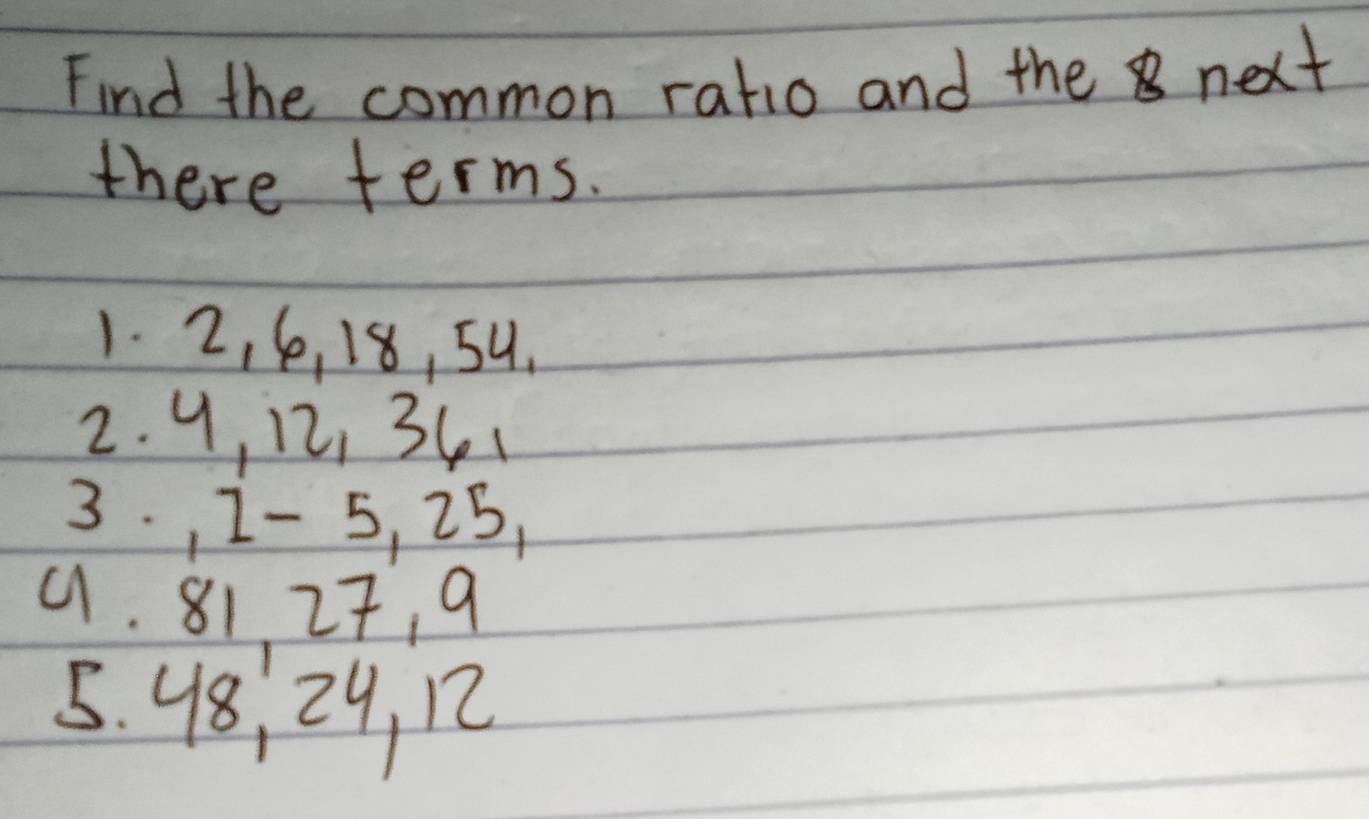 Find the common ratio and the next
there terms.
1. 2, 6, 18, 54,
2. 4, 12, 36,
3. , 1 - 5, 25,
4. 81, 27, 9
5. 48, 24, 12